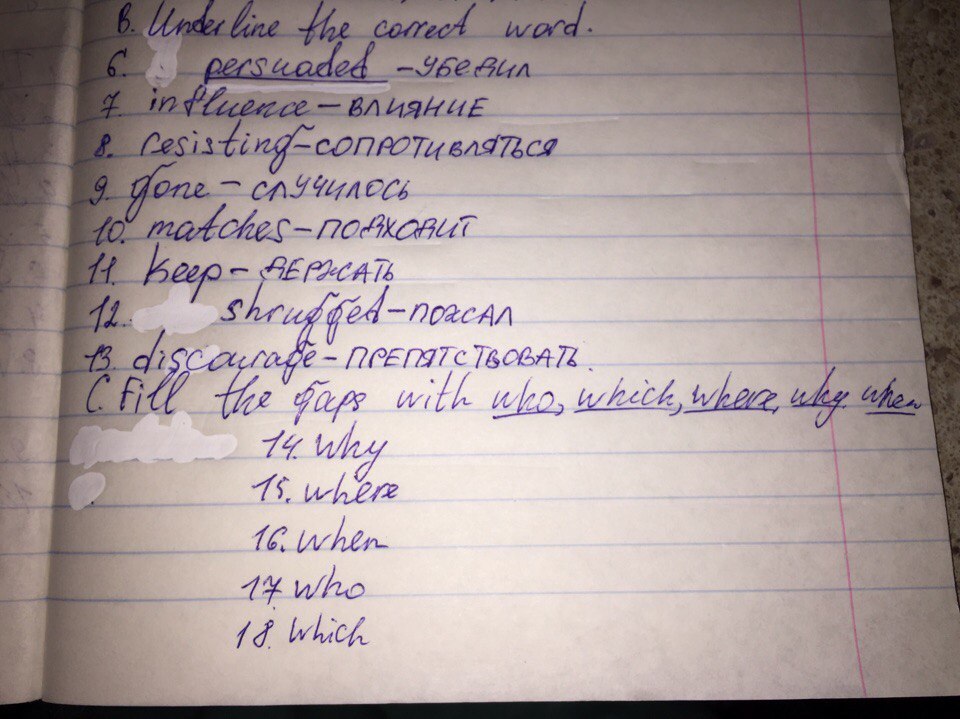 B. Underline the correct word.
6. persuaded - УБЕДИЛ
7. influence - ВЛИЯНИЕ
8. resisting - СОПРОТИВЛЯТЬСЯ
9. gone - СЛУЧИЛОСЬ
10. matches - ПОДХОДИТ
11. keep - ДЕРЖАТЬ
12. shrugged - ПОЖАЛ
13. discourage - ПРЕПЯТСТВОВАТЬ.
C. Fill the gaps with who, which, where, why when
14. Why
15. where
16. when
17. who
18. which